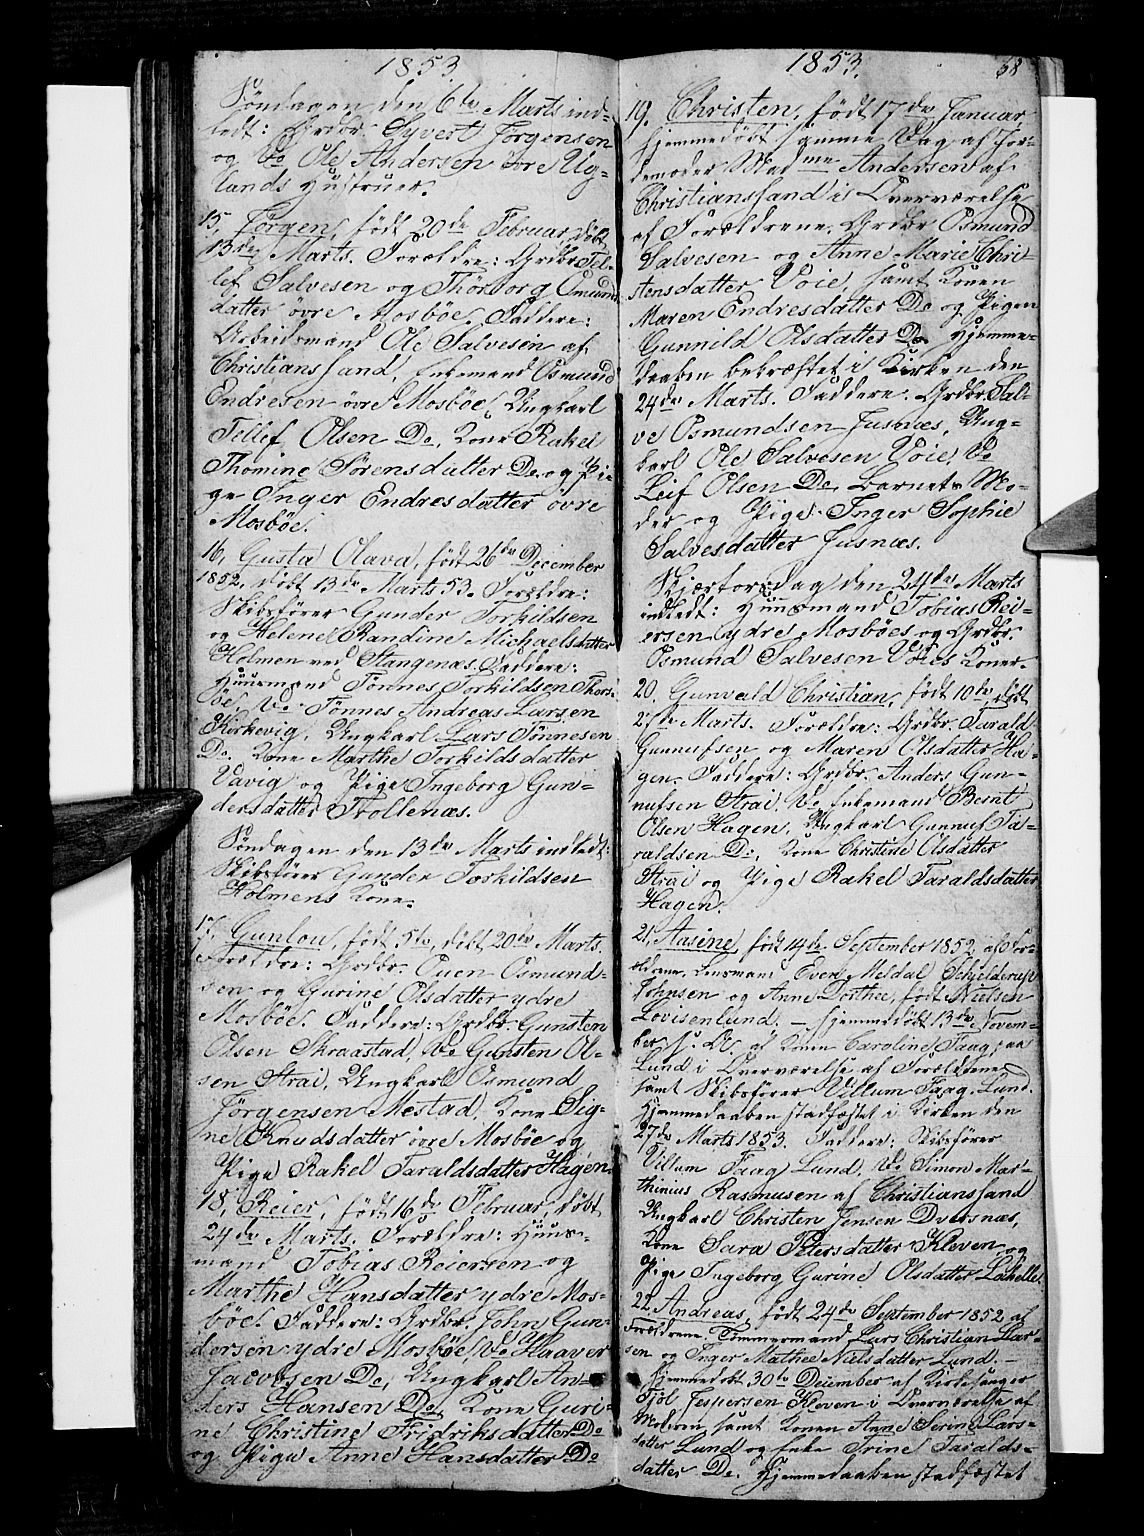 1853
Søndagen den 6te Marts ind-
ledt: Grdbr. Syvert Jørgensen
og Do Ole Andersen øvre Ug-
lands Hustruer.
15, Jørgen, født 20de Februar, døbt
13de Marts. Forældre: Grdbr. Tel-
lef Salvesen og Thorborg Osmunds
datter øvre Mosbøe. Faddere:
Arbeidsmand Ole Salvesen af
Christianssand, Enkemand Osmund
Endresen øvre Mosbøe, Ungkarl
Tellef Olsen Do, Kone Rakel
Thomine Sørensdatter Do og Pi-
ge Inger Endresdatter øvre
Mosbøe.
16, Gusta Olava, født 26de December
1852, døbt 13de Marts 53. Forældre:
Skibsfører Gunder Torkildsen
og Helene Randine Michaelsdatter
Holmen ved Stangenæs. Faddere:
Huusmand Tønnes Torkildsen Thors-
øe, Do Tønnes Andreas Larsen
Kirkevig, Ungkarl Lars Tønnesen
Do. Kone Marthe Torkildsdatter
Vavig og Pige Ingeborg Gun-
dersdatter Trollenæs.
Søndagen den 13de Marts indledt:
Skibsfører Gunder Torkildsen
Holmens Kone.
17, Gunlou, født 5te, døbt 20de Marts.
Forældre: Grdbr. Ouen Osmund-
sen og Gurine Olsdatter ydre
Mosbøe. Faddere: Grdbr. Gunsten
Olsen Skraastad, Do Gunsten Ol-
sen Strai, Ungkarl Osmund
Jørgensen Mestad, Kone Sig-
ne Knudsdatter øvre Mosbøe og
Pige Rakel Taraldsdatter Hagen.
18, Reier, født 16de Februar, døbt
24de Marts. Forældre: Huus-
mand Tobias Reiersen og
Marthe Hansdatter ydre Mos-
bøe. Faddere: Grdbr. John Gun-
dersen ydre Mosbøe, Do Haaver
Jacobsen Do, Ungkarl An-
ders Hansen Do, Kone Guri-
ne Christine Fridriksdatter Do
og Pige Anne Hansdatter Do
1853. 68
19, Christen, født 17de Januar
hjemmedøbt samme Dag af Jor-
demoder Madme Andersen af
Christianssand i Overværelse
af Forældrene, Grdbr Osmund
Salvesen og Anne Marie Chri-
stensdatter Voie, samt Konen
Maren Endresdatter Do og Pigen
Gunnild Olsdatter Do. Hjemme-
daaben bekræftet i Kirken den
24de Marts. Faddere: Grdbr. Sal-
ve Osmundsen Jusnæs, Ung-
karl Ole Salvesen Voie, Do
Leif Olsen Do, Barnets Mo-
der og Pige Inger Sophie
Salvesdatter Jusnæs.
Skjærtorsdag den 24de Marts
indledt: Huusmand Tobias Rei-
ersen ydre Mosbøes og Grdbr.
Osmund Salvesen Voies Koner.
20. Gunvald Christian, født 10de, døbt
27de Marts. Forældre: Grdbr. Tarald
Gunnufsen og Maren Olsdatter Ha-
gen. Faddere: Grdbr. Anders Gun-
nufsen Strai, Do Enkemand Bernt
Olsen Hagen, Ungkarl Gunnuf Ta-
raldsen Do, Kone Christine Olsdatter
Strai og Pige Rakel Taraldsdatter
Hagen.
21, Aasine, født 14de September 1852, af For-
ældrene Lensmand Even Meldal Schjelderup
Johnsen og Anne Dorthee, født Nielsen
Lovisenlund. – Hjemmedøbt 13de Novem-
ber s. A. af Konen Caroline Faag, aa
Lund i Overværelse af Forældrene
samt Skibsfører Villum Faag, Lund.
Hjemmedaaben stadfæstet i Kirken den
27de Marts 1853. Faddere: Skibsfører
Villum Faag Lund, Do Simon Mar-
thinius Rasmusen af Christianssand
Ungkarl Christen Jensen Dversnæs,
Kone Sara Petersdatter Kleven og
Pige Ingeborg Gurine Olsdatter Lahelle.
22, Andreas, født 24de September 1852 af
Forældrene: Tømmermand Lars Christian Lar-
sen og Inger Mathea Nielsdatter Lund. –
Hjemmedøbt 30te December af Kirkesanger
Fjøl Jespersen Kleven i Overværelse af
Moderen samt Konen Anne Serine Lars-
datter Lund og Enke Trine Taralds-
datter Do. Hjemmedaaben stadfæstet